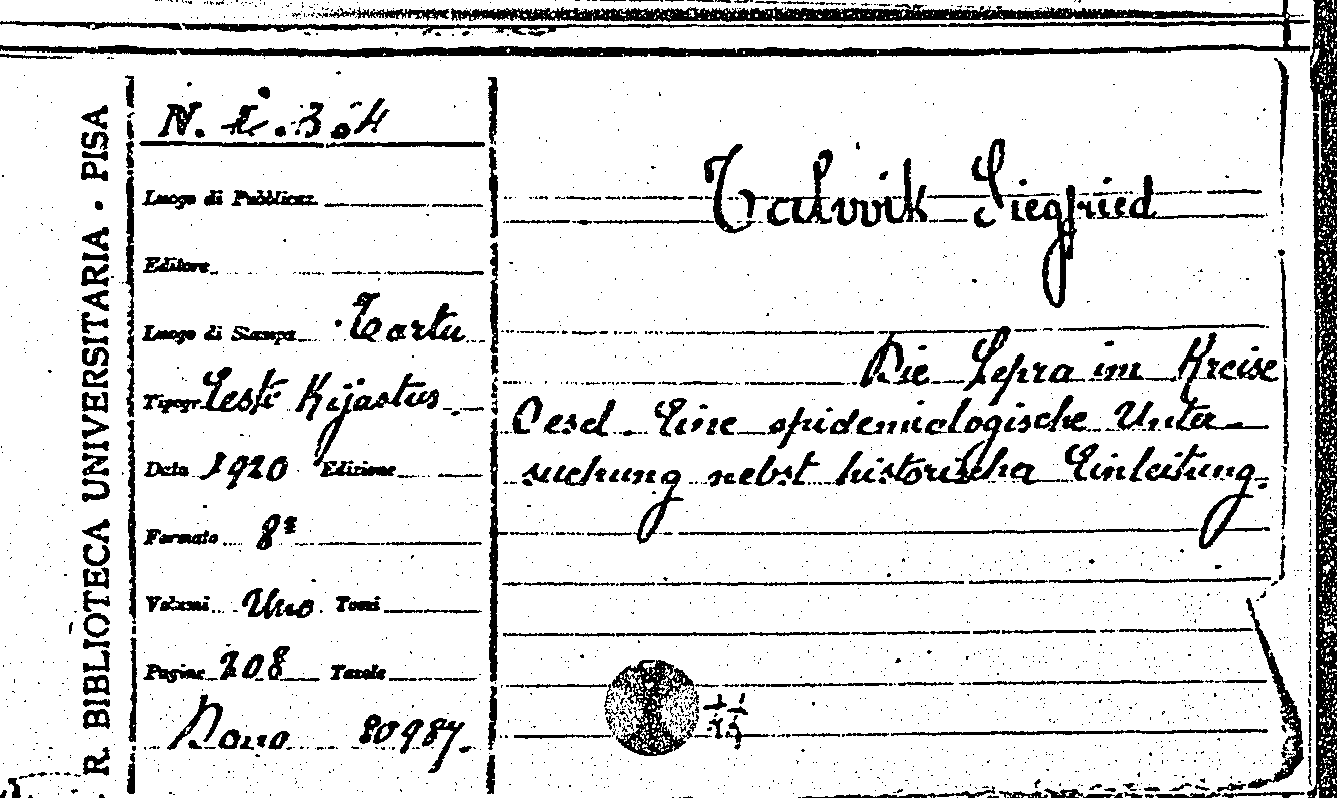 R. BIBLIOTECA UNIVERSITARIA · PISA
N. I. 3.4
Luogo di Pubblicaz.
Editore
Luogo di Stampa Tartu
Tipogr. Eesti Kijastus
Data 1920 Edizione
Formato 8º
Volumi Uno Tomi
Pagine 208 Tavole
Dono 80987.
Talvvik Siegfried
Die Lepra im Kreise
Oesel. Eine epidemiologische Unter-
suchung nebst historischer Einleitung.